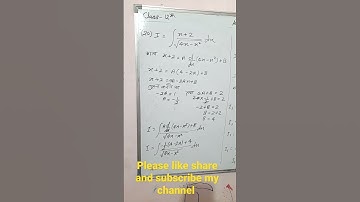 Class-12th
(20) I = ∫ x+2 / √4x-x² dx
माना x+2 = A d/dx (4x-x²)+B
x+2 = A(4-2x)+B
x+2 = 4A-2Ax+B
-2A = 1
A = -1/2
4A+B = 2
-2+B = 2
B = 2+2
B = 4
I = ∫ A d/dx (4x-x²)+B / √4x-x² dx
I = ∫ -1/2 (4-2x)+4 / √4x-x² dx
Please like share
and subscribe my
channel